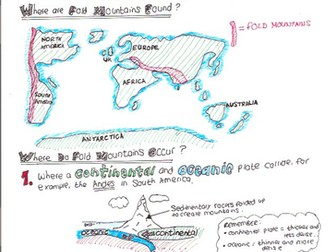 Where are Fold Mountains Found?
= FOLD MOUNTAINS
NORTH AMERICA
EUROPE
UK
AFRICA
SOUTH AMERICA
AUSTRALIA
ANTARCTICA
Where Do Fold Mountains Occur?
1. Where a continental and oceanic plate collide. For
example, the Andes in South America.
Sedimentary rocks folded up
to create mountains.
Remember:
• continental plate = thicker and
less dense.
• oceanic = thinner and more
dense
oceanic
continental